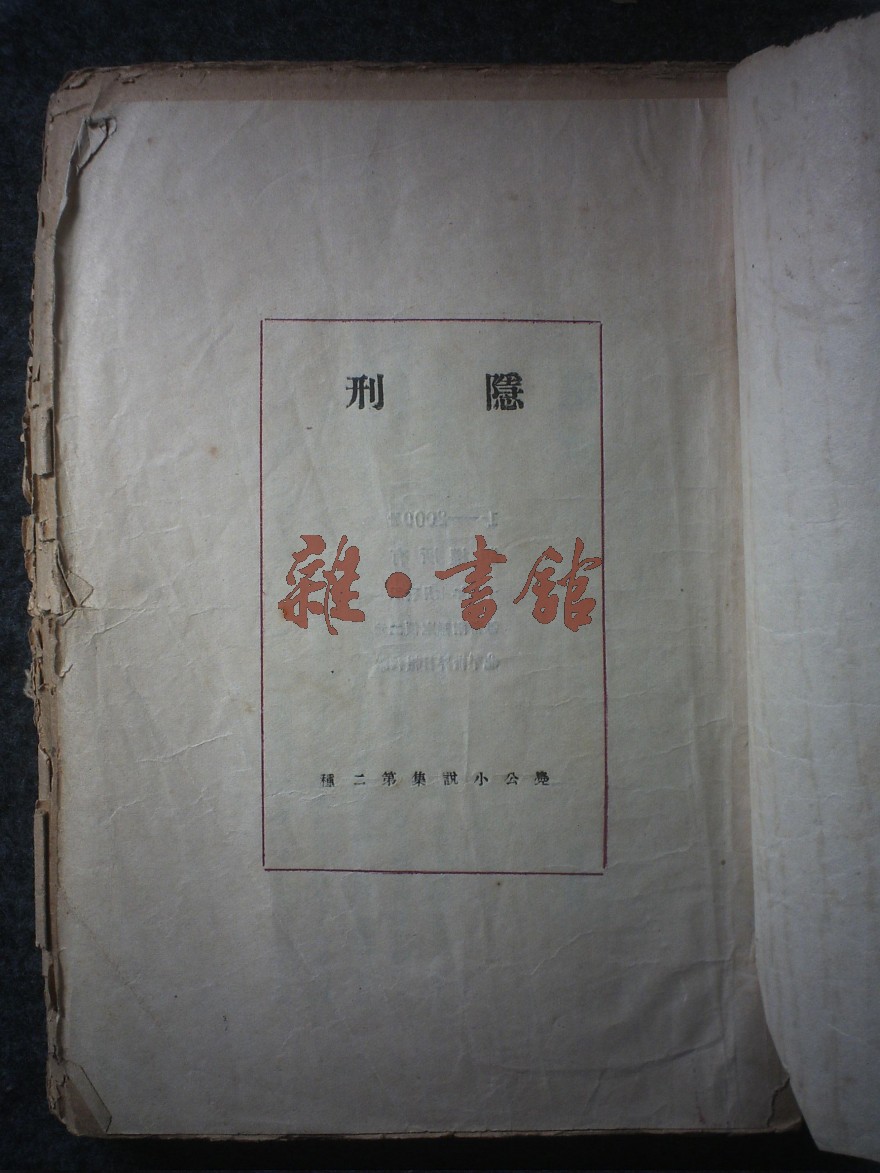 隱刑
雜·書館
公小說集第二種